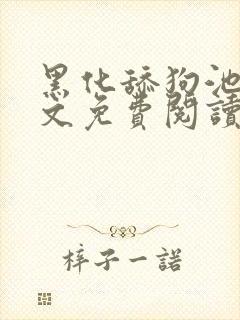 黑化舔狗池
文免費閱讀
梓子一諾